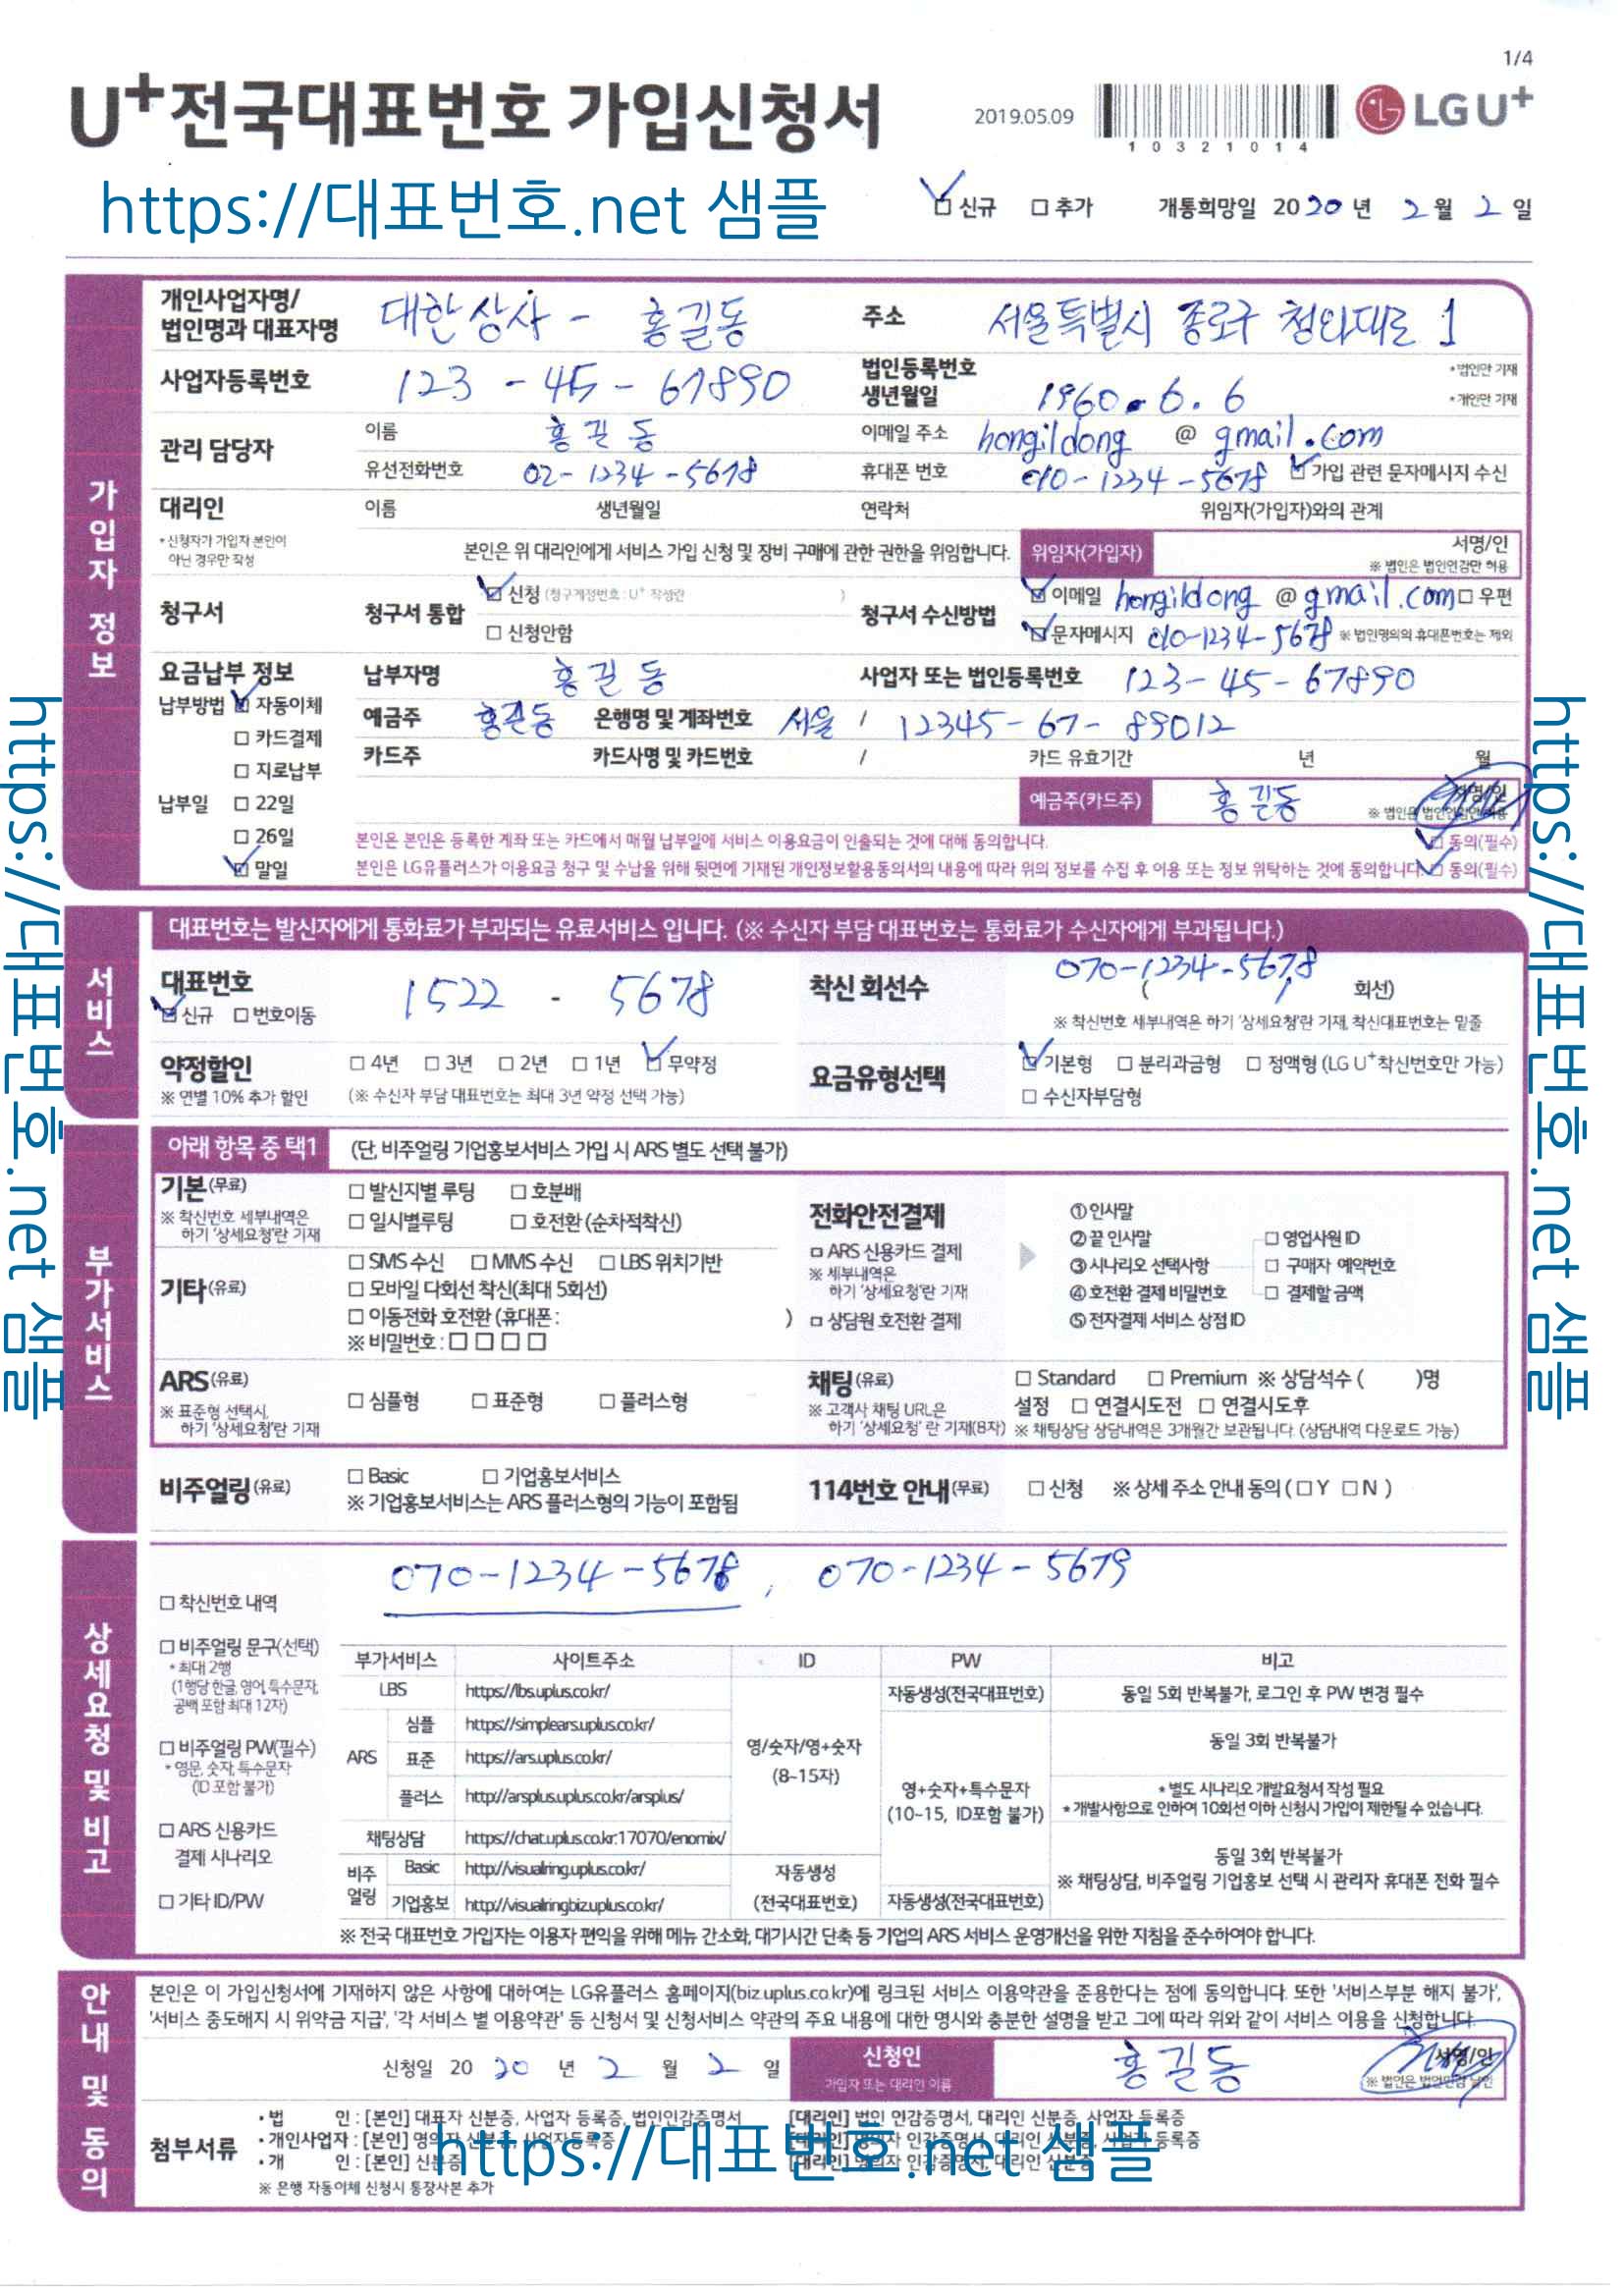 1/4
U⁺전국대표번호 가입신청서
2019.05.09
1 0 3 2 1 0 1 4
LG U⁺
https://대표번호.net 샘플
☑ 신규 □ 추가 개통희망일 2020 년 2 월 2 일
가입자 정보
개인사업자명/
법인명과 대표자명
대한상사 - 홍길동
주소 서울특별시 종로구 청와대로 1
사업자등록번호 123 - 45 - 67890
법인등록번호 *법인만 기재
생년월일 1960. 6. 6 *개인만 기재
관리 담당자
이름 홍길동
이메일 주소 hongildong @ gmail.com
유선전화번호 02-1234-5678
휴대폰 번호 010-1234-5678 ☑ 가입 관련 문자메시지 수신
대리인 이름 생년월일 연락처 위임자(가입자)와의 관계
*신청자가 가입자 본인이
아닌 경우만 작성
본인은 위 대리인에게 서비스 가입 신청 및 장비 구매에 관한 권한을 위임합니다.
위임자(가입자) 서명/인
※ 법인은 법인인감만 허용
청구서
청구서 통합 ☑ 신청 (청구계정번호 : U⁺ 작성란 )
□ 신청안함
청구서 수신방법 ☑ 이메일 hongildong @ gmail.com □ 우편
☑ 문자메시지 010-1234-5678 ※ 법인명의의 휴대폰번호는 제외
요금납부 정보
납부자명 홍길동
사업자 또는 법인등록번호 123-45-67890
납부방법 ☑ 자동이체
□ 카드결제
□ 지로납부
예금주 홍길동 은행명 및 계좌번호 서울 / 12345-67-89012
카드주 카드사명 및 카드번호 / 카드 유효기간 년 월
납부일 □ 22일
□ 26일
☑ 말일
예금주(카드주) 홍길동 서명/인
※ 법인은 법인인감만 허용
본인은 본인은 등록한 계좌 또는 카드에서 매월 납부일에 서비스 이용요금이 인출되는 것에 대해 동의합니다. ☑ 동의(필수)
본인은 LG유플러스가 이용요금 청구 및 수납을 위해 뒷면에 기재된 개인정보활용동의서의 내용에 따라 위의 정보를 수집 후 이용 또는 정보 위탁하는 것에 동의합니다. ☑ 동의(필수)
서비스
대표번호는 발신자에게 통화료가 부과되는 유료서비스 입니다. (※ 수신자 부담 대표번호는 통화료가 수신자에게 부과됩니다.)
대표번호
☑ 신규 □ 번호이동
1522 - 5678
착신 회선수 070-1234-5678
( / 회선)
※ 착신번호 세부내역은 하기 '상세요청'란 기재, 착신대표번호는 밑줄
약정할인
※ 연별 10% 추가 할인
□ 4년 □ 3년 □ 2년 □ 1년 ☑ 무약정
(※ 수신자 부담 대표번호는 최대 3년 약정 선택 가능)
요금유형선택
☑ 기본형 □ 분리과금형 □ 정액형 (LG U⁺착신번호만 가능)
□ 수신자부담형
부가서비스
아래 항목 중 택1 (단, 비주얼링 기업홍보서비스 가입 시 ARS 별도 선택 불가)
기본(무료)
※ 착신번호 세부내역은
하기 '상세요청'란 기재
□ 발신지별 루팅 □ 호분배
□ 일시별루팅 □ 호전환 (순차적착신)
기타(유료)
□ SMS 수신 □ MMS 수신 □ LBS 위치기반
□ 모바일 다회선 착신(최대 5회선)
□ 이동전화 호전환 (휴대폰 : )
※ 비밀번호 : □ □ □ □
전화안전결제
□ ARS 신용카드 결제
※ 세부내역은
하기 '상세요청'란 기재
□ 상담원 호전환 결제
① 인사말
② 끝 인사말
③ 시나리오 선택사항
④ 호전환 결제 비밀번호
⑤ 전자결제 서비스 상점 ID
□ 영업사원 ID
□ 구매자 예약번호
□ 결제할 금액
ARS(유료)
※ 표준형 선택시,
하기 '상세요청'란 기재
□ 심플형 □ 표준형 □ 플러스형
채팅(유료)
※ 고객사 채팅 URL은
하기 '상세요청' 란 기재(8자)
□ Standard □ Premium ※ 상담석수 ( )명
설정 □ 연결시도전 □ 연결시도후
※ 채팅상담 상담내역은 3개월간 보관됩니다. (상담내역 다운로드 가능)
비주얼링(유료)
□ Basic □ 기업홍보서비스
※ 기업홍보서비스는 ARS 플러스형의 기능이 포함됨
114번호 안내(무료) □ 신청 ※ 상세 주소 안내 동의 ( □ Y □ N )
상세요청 및 비고
070-1234-5678, 070-1234-5679
□ 착신번호 내역
□ 비주얼링 문구(선택)
* 최대 2행
(1행당 한글, 영어, 특수문자,
공백 포함 최대 12자)
□ 비주얼링 PW(필수)
* 영문, 숫자, 특수문자
(ID 포함 불가)
□ ARS 신용카드
결제 시나리오
□ 기타 ID/PW
부가서비스 사이트주소 ID PW 비고
LBS https://lbs.uplus.co.kr/ 자동생성(전국대표번호) 동일 5회 반복불가, 로그인 후 PW 변경 필수
ARS
심플 https://simplears.uplus.co.kr/
표준 https://ars.uplus.co.kr/
플러스 http://arsplus.uplus.co.kr/arsplus/
영/숫자/영+숫자
(8~15자)
영+숫자+특수문자
(10~15, ID포함 불가)
동일 3회 반복불가
* 별도 시나리오 개발요청서 작성 필요
* 개발사항으로 인하여 10회선 이하 신청시 가입이 제한될 수 있습니다.
채팅상담 https://chat.uplus.co.kr:17070/enomix/
비주얼링
Basic http://visualring.uplus.co.kr/
기업홍보 http://visualringbiz.uplus.co.kr/
자동생성
(전국대표번호)
자동생성(전국대표번호)
동일 3회 반복불가
※ 채팅상담, 비주얼링 기업홍보 선택 시 관리자 휴대폰 전화 필수
※ 전국 대표번호 가입자는 이용자 편익을 위해 메뉴 간소화, 대기시간 단축 등 기업의 ARS 서비스 운영개선을 위한 지침을 준수하여야 합니다.
안내 및 동의
본인은 이 가입신청서에 기재하지 않은 사항에 대하여는 LG유플러스 홈페이지(biz.uplus.co.kr)에 링크된 서비스 이용약관을 준용한다는 점에 동의합니다. 또한 '서비스부분 해지 불가',
'서비스 중도해지 시 위약금 지급', '각 서비스 별 이용약관' 등 신청서 및 신청서비스 약관의 주요 내용에 대한 명시와 충분한 설명을 받고 그에 따라 위와 같이 서비스 이용을 신청합니다.
신청일 2020 년 2 월 2 일
신청인
가입자 또는 대리인 이름
홍길동 서명/인
※ 법인은 법인인감 날인
첨부서류
• 법 인 : [본인] 대표자 신분증, 사업자 등록증, 법인인감증명서 [대리인] 법인 인감증명서, 대리인 신분증, 사업자 등록증
• 개인사업자 : [본인] 명의자 신분증, 사업자등록증 [대리인] 명의자 인감증명서, 대리인 신분증, 사업자 등록증
• 개 인 : [본인] 신분증 [대리인] 명의자 인감증명서, 대리인 신분증
※ 은행 자동이체 신청시 통장사본 추가
https://대표번호.net 샘플
https://대표번호.net 샘플
https://대표번호.net 샘플